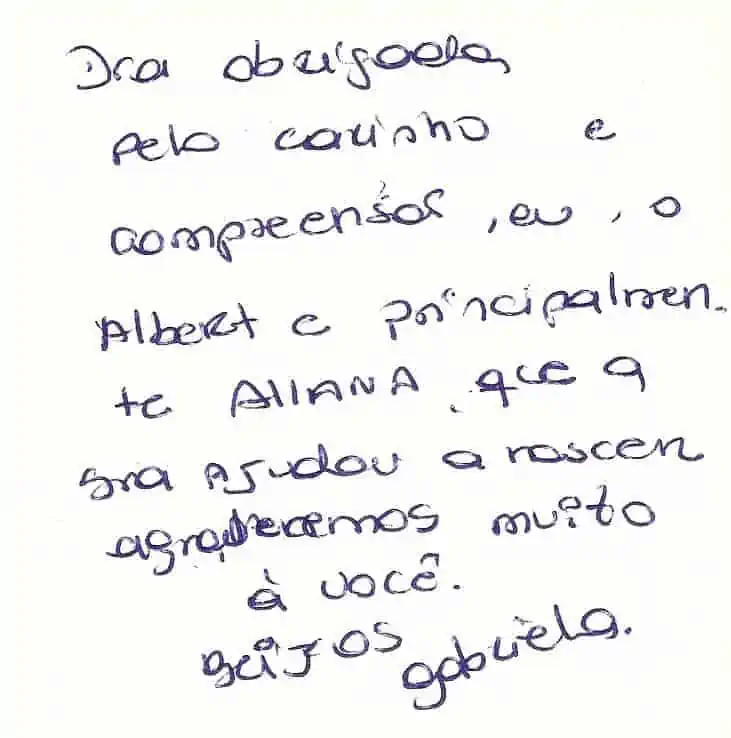 Dra obrigada
pelo carinho e
compreensão, eu, o
Albert e principalmen.
te AllANA, que a
sra Ajudou a nascer
agradecemos muito
à você.
Beijos gabriela.